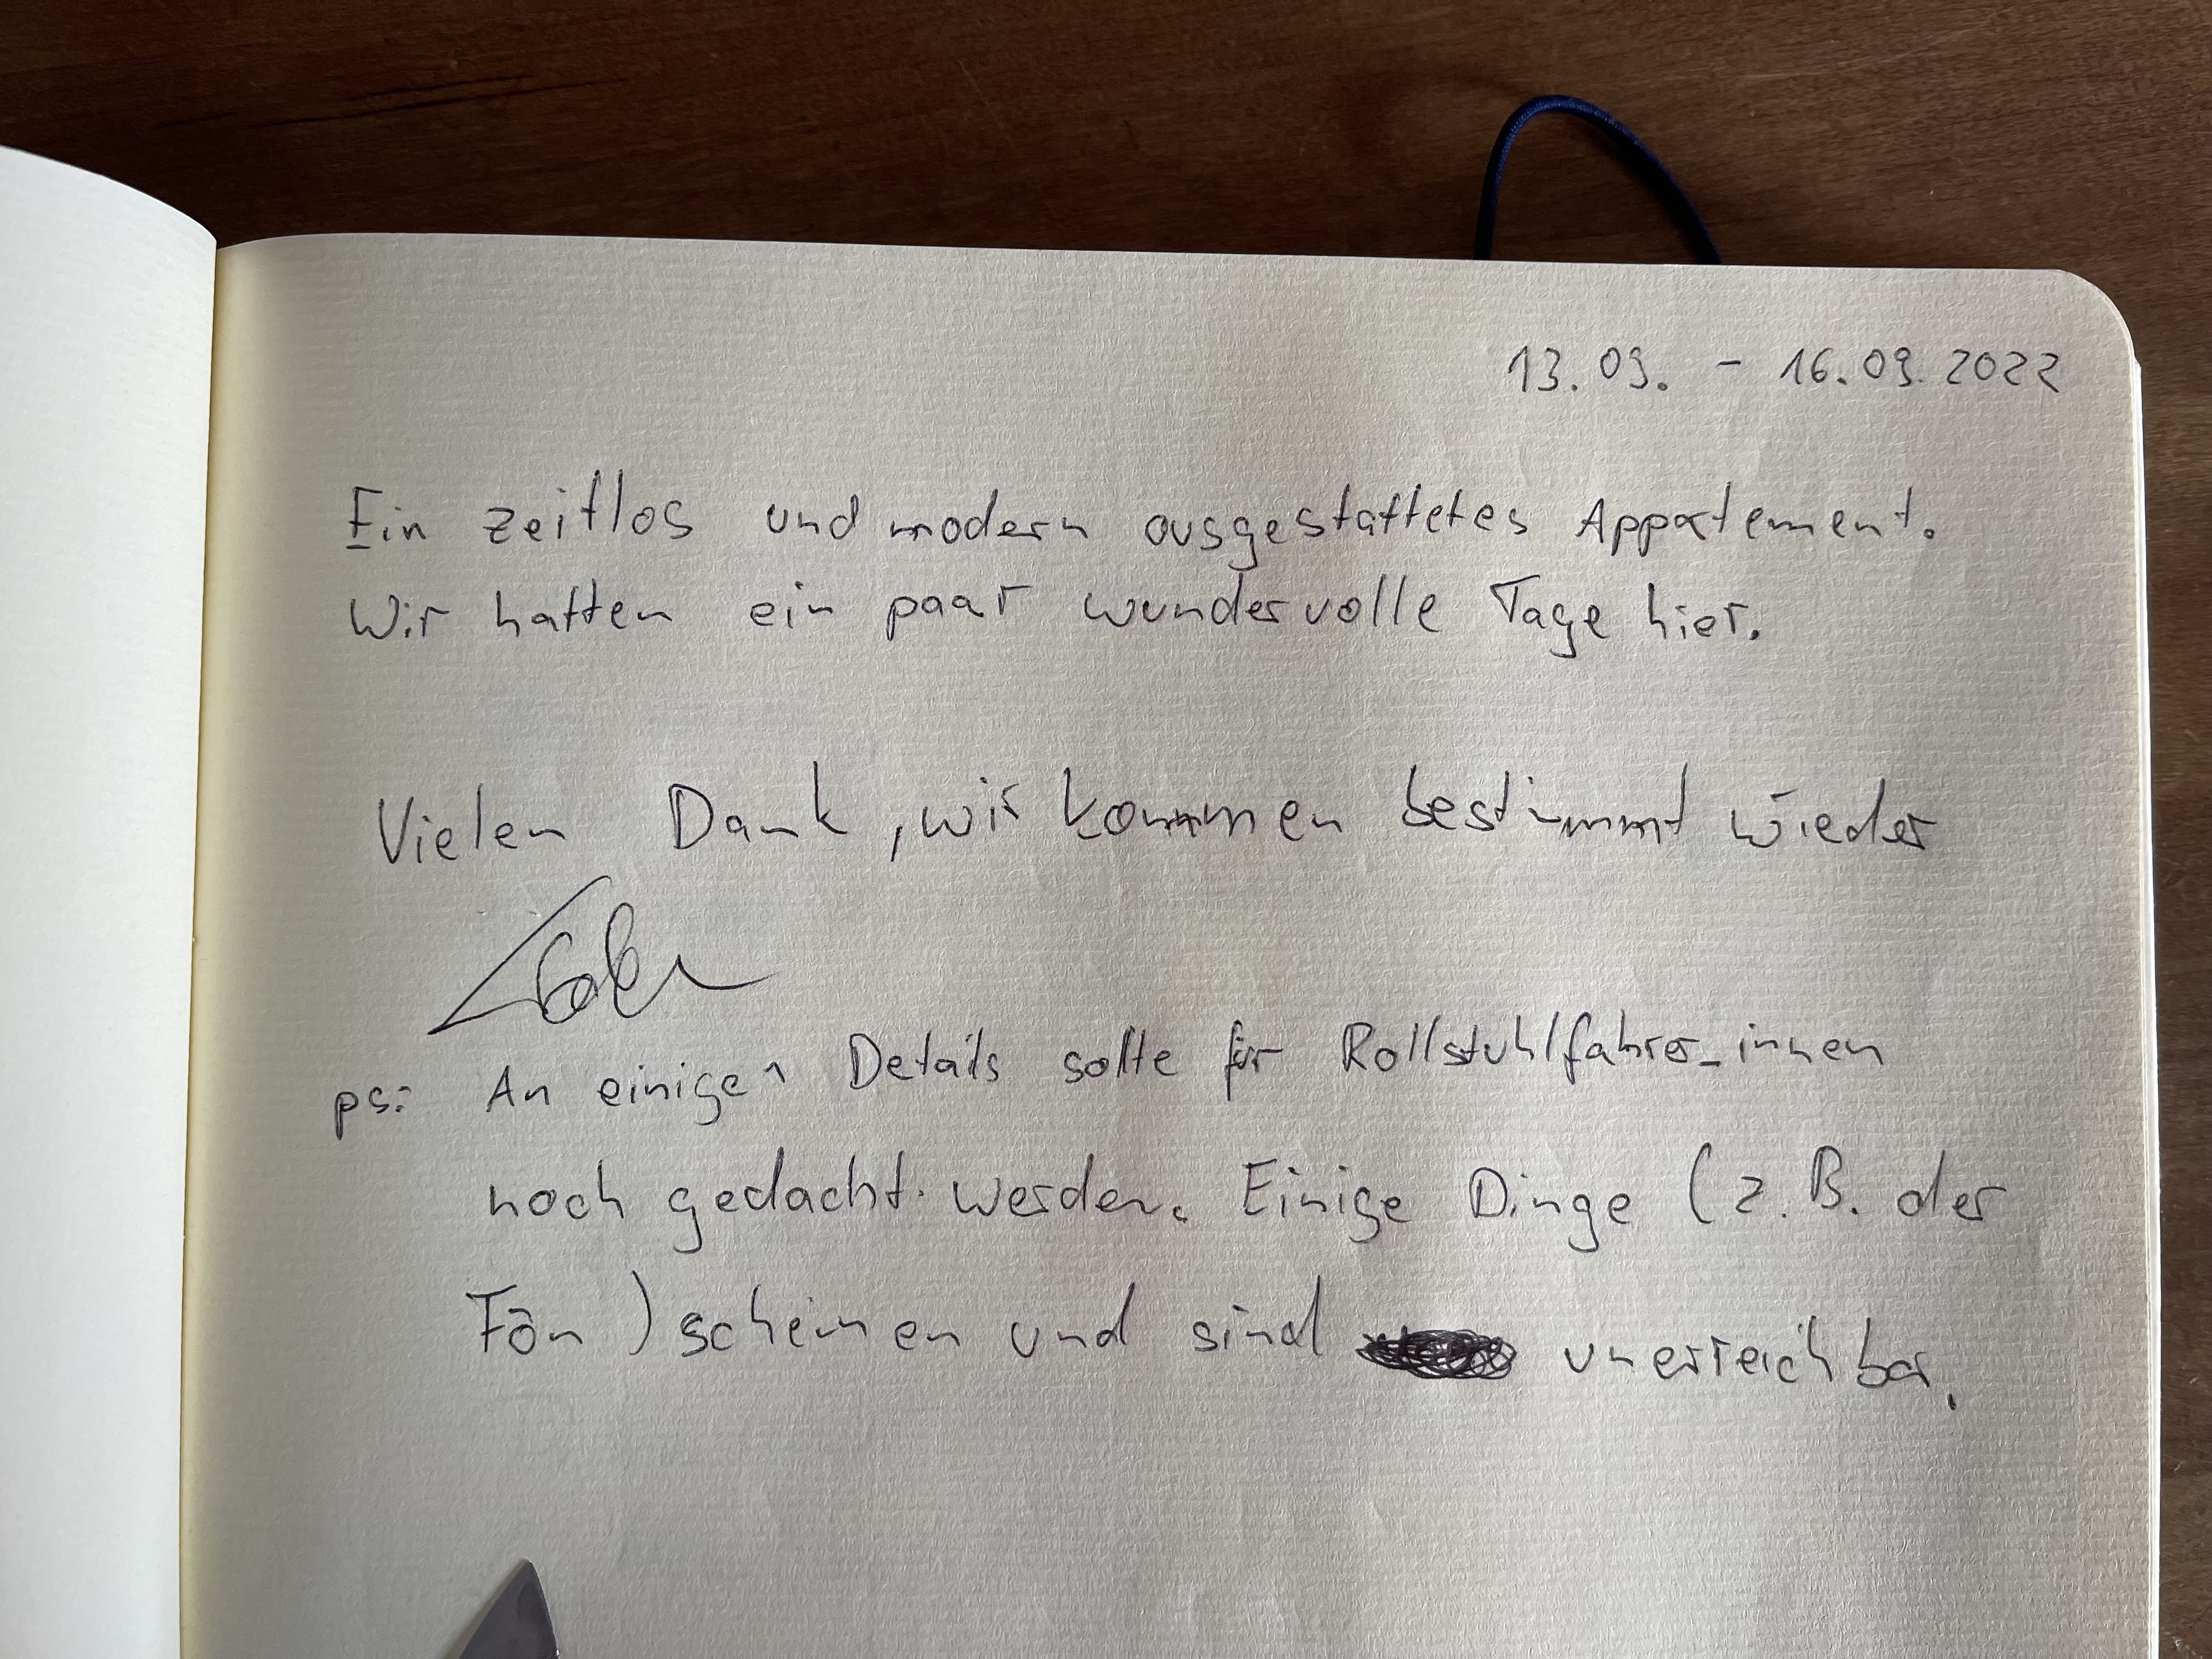 13.09. - 16.09.2022
Ein zeitlos und modern ausgestattetes Appartement.
Wir hatten ein paar wundervolle Tage hier.
Vielen Dank, wir kommen bestimmt wieder
ps: An einige Details sollte für Rollstuhlfahrer_innen
noch gedacht werden. Einige Dinge (z.B. der
Fön) scheinen und sind unerreichbar.